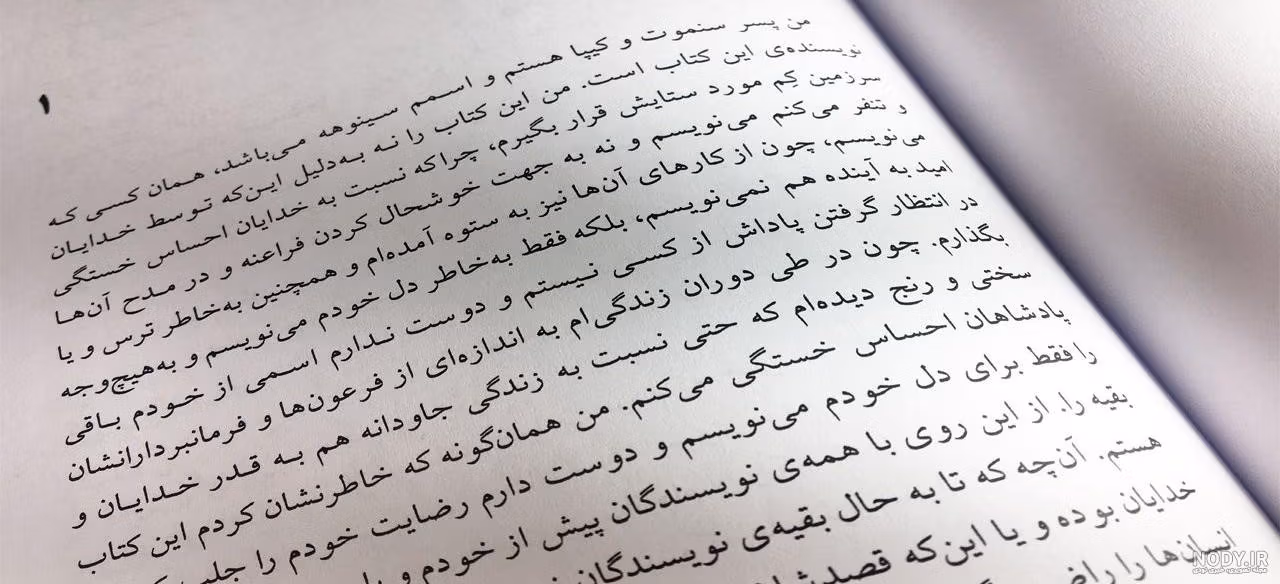 ۱
من پسر سنموت و کیپا هستم و اسمم سینوهه می‌باشد، همان کسی که
نویسنده‌ی این کتاب است. من این کتاب را نه به‌دلیل این‌که توسط خدایان
سرزمین کِم مورد ستایش قرار بگیرم، چراکه نسبت به خدایان احساس خستگی
و تنفر می‌کنم می‌نویسم و نه به جهت خوشحال کردن فراعنه و در مدح آن‌ها
می‌نویسم، چون از کارهای آن‌ها نیز به ستوه آمده‌ام و همچنین به‌خاطر ترس و یا
امید به آینده هم نمی‌نویسم، بلکه فقط به‌خاطر دل خودم می‌نویسم و به‌هیچ‌وجه
در انتظار گرفتن پاداش از کسی نیستم و دوست ندارم اسمی از خودم باقی
بگذارم. چون در طی دوران زندگی‌ام به اندازه‌ای از فرعون‌ها و فرمانبردارانشان
سختی و رنج دیده‌ام که حتی نسبت به زندگی جاودانه هم به قدر خدایان و
پادشاهان احساس خستگی می‌کنم. من همان‌گونه که خاطرنشان کردم این کتاب
را فقط برای دل خودم می‌نویسم و دوست دارم رضایت خودم را جلب
بقیه را. از این روی با همه‌ی نویسندگان پیش از خودم و
هستم. آن‌چه که تا به حال بقیه‌ی نویسندگان
خدایان بوده و یا این‌که
انسان‌ها را
NODY.IR